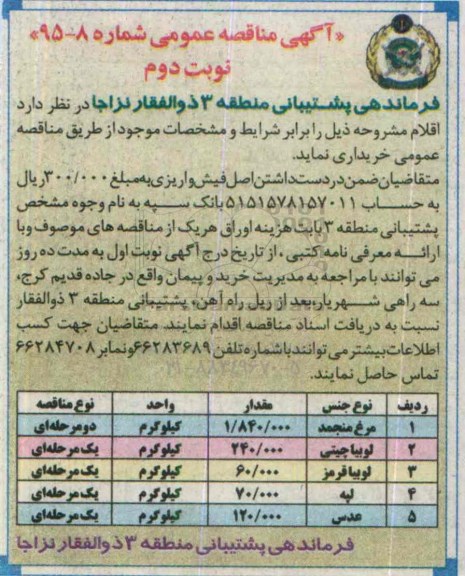 «آگهی مناقصه عمومی شماره ۸-۹۵»
نوبت دوم
فرماندهی پشتیبانی منطقه ۳ ذوالفقار نزاجا در نظر دارد
اقلام مشروحه ذیل را برابر شرایط و مشخصات موجود از طریق مناقصه
عمومی خریداری نماید.
متقاضیان ضمن در دست داشتن اصل فیش واریزی به مبلغ ۳۰۰/۰۰۰ ریال
به حساب ۵۱۵۱۵۷۸۱۵۷۰۱۱ بانک سپه به نام وجوه مختص
پشتیبانی منطقه ۳ بابت هزینه اوراق هریک از مناقصه های موصوف و با
ارائه معرفی نامه کتبی، از تاریخ درج آگهی نوبت اول به مدت ده روز
می توانند با مراجعه به مدیریت خرید و پیمان واقع در جاده قدیم کرج،
سه راهی شهریار، بعد از ریل راه آهن، پشتیبانی منطقه ۳ ذوالفقار
نسبت به دریافت اسناد مناقصه اقدام نمایند. متقاضیان جهت کسب
اطلاعات بیشتر می توانند با شماره تلفن ۶۶۲۸۳۶۸۹ و نمابر ۶۶۲۸۴۷۰۸
تماس حاصل نمایند.
ردیف نوع جنس مقدار واحد نوع مناقصه
۱ مرغ منجمد ۱/۸۴۰/۰۰۰ کیلوگرم دو مرحله‌ای
۲ لوبیا چیتی ۲۴۰/۰۰۰ کیلوگرم یک مرحله‌ای
۳ لوبیا قرمز ۶۰/۰۰۰ کیلوگرم یک مرحله‌ای
۴ لپه ۷۰/۰۰۰ کیلوگرم یک مرحله‌ای
۵ عدس ۱۲۰/۰۰۰ کیلوگرم یک مرحله‌ای
فرماندهی پشتیبانی منطقه ۳ ذوالفقار نزاجا